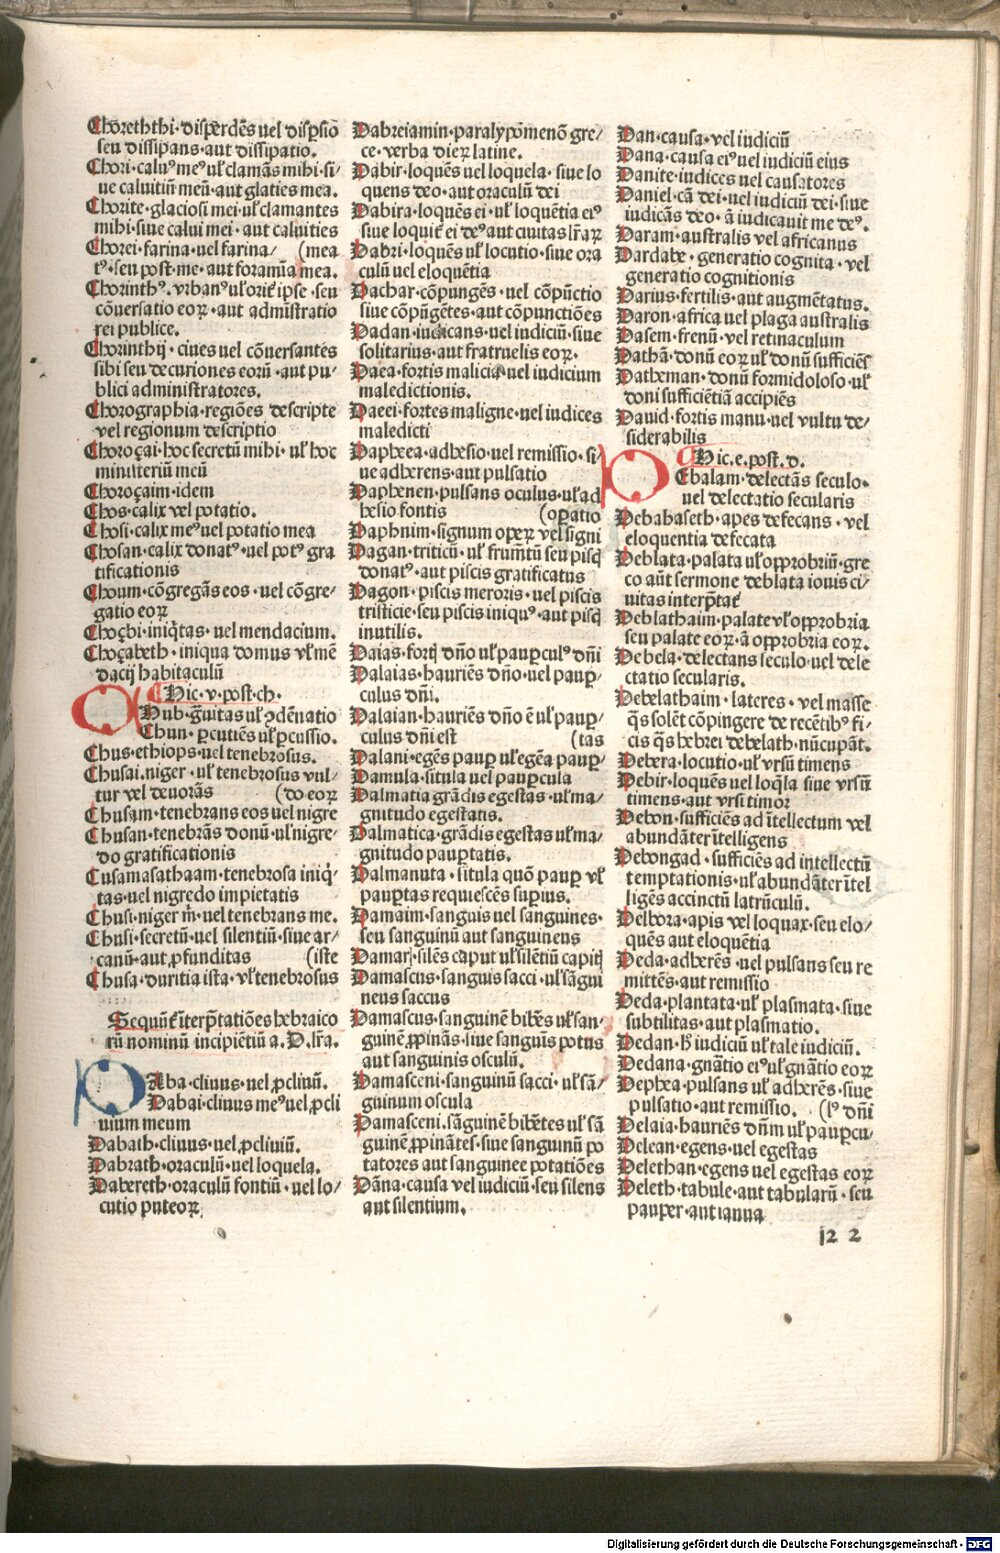 Choreththi·disperdēs uel dispsio
seu dissipans·aut dissipatio.
Chori·caluꝰ meꝰ uł clamās mihi·si⸗
ue caluitiū meū·aut glaties mea.
Chorite·glaciosi mei uł clamantes
mihi·siue calui mei·aut caluities
Chorei·farina·uel farina⸗ (mea
tꝰ·seu post me·aut foramīa mea.
Chorinthꝰ.vrbanꝰ uł orit̄ ipse·seu
cōuersatio eoꝝ·aut admīstratio
rei publice.
Chorinthij·ciues uel cōuersantes
sibi seu decuriones eorū·aut pu⸗
blici administratores.
Chorographia·regiōes descripte
vel regionum descriptio
Choroçai·hoc secretū mihi·uł hoc
ministeriū meū
Choroçaim·idem
Chos·calix vel potatio.
Chosi·calix meꝰ uel potatio mea
Chosan·calix donatꝰ·uel potꝰ gra
tificationis
Choum·cōgregās eos·uel cōgre⸗
gatio eoꝝ
Choçbi·iniq̄tas·uel mendacium.
Choçabeth·iniqua domus vł mē
dacij habitaculū
Hic·v·post·ch.
CHub·ḡuitas uł ꝯdēnatio
Chun·ꝑcutiēs uł ꝑcussio.
Chus·ethiops·uel tenebrosus.
Chusai.niger·uł tenebrosus vul⸗
tur vel deuorās (do eoꝝ
Chusam·tenebrans eos uel nigre
Chusan·tenebrās donū·uł nigre⸗
do gratificationis
Cusamasathaam·tenebrosa iniq̄⸗
tas·uel nigredo impietatis
Chusi·niger m̄·uel tenebrans me.
Chusi·secretū·uel silentiū·siue ar⸗
canū·aut ꝓfunditas (iste
Chusa·duritia ista·vł tenebrosus
Sequūt̄ īterp̄tatiōes hebraico
rū nominū incipiētiū a.D.lr̄a.
DAba·cliuus·uel ꝓcliuū.
Dabai·cliuus meꝰ uel ꝓcli
uium meum
Dabath·cliuus·uel ꝓcliuiū.
Dabrath·oraculū·uel loquela.
Dabereth·oraculū fontiū·uel lo⸗
cutio puteoꝝ
Dabreiamin·paralypomenō gre⸗
ce·verba dieꝝ latine.
Dabir·loquēs uel loquela·siue lo
quens deo·aut oraculū dei
Dabira·loquēs ei·uł loquētia eiꝰ
siue loquit̄ ei deꝰ aut ciuitas lr̄aꝝ
Dabri·loquēs uł locutio·siue ora
culū uel eloquētia
Dachar·cōpungēs·uel cōpūctio
siue cōpūgētes·aut cōpunctiōes
Dadan·iudicans·uel iudiciū·siue
solitarius·aut fratruelis eoꝝ.
Daea·fortis malicia·uel iudicium
maledictionis.
Daeei·fortes maligne·uel iudices
maledicti
Dapheea·adhesio·uel remissio·si⸗
ue adherens·aut pulsatio
Daphenen·pulsans oculus·uł ad
hesio fontis (oꝑatio
Daphnim·signum operꝝ vel signi
Dagan·triticū·uł frumētū seu pisc̄
donatꝰ·aut piscis gratificatus
Dagon·piscis meroris·uel piscis
tristicie·seu piscis iniquꝰ·aut pisc̄
inutilis.
Daias·fortꝭ dn̄o uł pauꝑculꝰ dn̄i
Dalaias·hauriēs dn̄o·uel pauꝑ⸗
culus dn̄i.
Dalaian·hauriēs dn̄o ē uł pauꝑ⸗
culus dn̄i est (tas
Dalani·egēs pauꝑ uł egēa pauꝑ⸗
Damula·situla uel pauꝑcula
Dalmatia grādis egestas·uł ma⸗
gnitudo egestatis.
Dalmatica·grādis egestas uł ma⸗
gnitudo pauꝑtatis.
Dalmanuta·situla quō pauꝑ vł
pauꝑtas requiescēs suꝑius.
Damaim·sanguis uel sanguines·
seu sanguinū aut sanguinens
Damar·silēs caput uł silētiū capitꝭ
Damascus·sanguis sacci·uł sāgui
neus saccus
Damascus·sanguinē bibēs uł san⸗
guinē ꝓpinās·siue sanguīs potus
aut sanguinis osculū.
Damasceni·sanguinū sacci·uł sā⸗
guinum oscula
Damasceni.sāguinē bibētes uł sā
guinē ꝓpinātes·siue sanguinū po
tatores aut sanguinee potatiōes
Dāna·causa vel iudiciū·seu silens
aut silentium.
Dan·causa·vel iudiciū
Dana·causa eiꝰ uel iudiciū eius
Danite·iudices uel causatores
Daniel·cā dei·uel iudiciū dei·siue
iudicās deo·ā iudicauit me deꝰ.
Daram·australis vel africanus
Dardabe·generatio cognita·vel
generatio cognitionis
Darius·fertilis·aut augmētatus.
Daron·africa uel plaga australis
Dasem·frenū·vel retinaculum
Dathā·donū eoꝝ uł donū sufficiēs
Datheman·donū formidoloso·uł
doni sufficiētiā accipiēs
Dauid·fortis manu·uel vultu de⸗
siderabilis
Hic.e.post.d.
DEbalam·delectās seculo·
uel delectatio secularis
Debahaseth·apes defecans·vel
eloquentia defecata
Deblata·palata uł opprobriū·gre
co aūt sermone deblata iouis ci⸗
uitas interp̄tat̄
Deblathaim·palate vł opprobria
seu palate eoꝝ·ā opprobria eoꝝ.
Debela·delectans seculo·uel dele
ctatio secularis.
Debelathaim·lateres·vel masse
q̄s solēt cōpingere de recētibꝰ fi⸗
cis q̄s hebrei debelath·nūcupāt.
Debera·locutio·uł vrsū timens
Debir·loquēs uel loq̄la siue vrsū
timens·aut vrsi timor
Debon·sufficiēs ad ītellectum vel
abundāter ītelligens
Debongad·sufficiēs ad intellectū
temptationis·uł abundāter ītel
ligēs accinctū latrūculū.
Delbora·apis vel loquax·seu elo⸗
quēs aut eloquētia
Deda·adherēs·uel pulsans seu re
mittēs·aut remissio
Deda·plantata·uł plasmata·siue
subtilitas·aut plasmatio.
Dedan·h̄ iudiciū uł tale iudiciū.
Dedana·gnātio eiꝰ uł gnātio eoꝝ
Dephea·pulsans uł adherēs·siue
pulsatio·aut remissio. (lꝰ dn̄i
Delaia·hauriēs dn̄m uł pauꝑcu⸗
Delean·egens·uel egestas
Delethan·egens uel egestas eoꝝ
Deleth·tabule·aut tabularū·seu
pauper·aut ianua
12 2
Digitalisierung gefördert durch die Deutsche Forschungsgemeinschaft - DFG